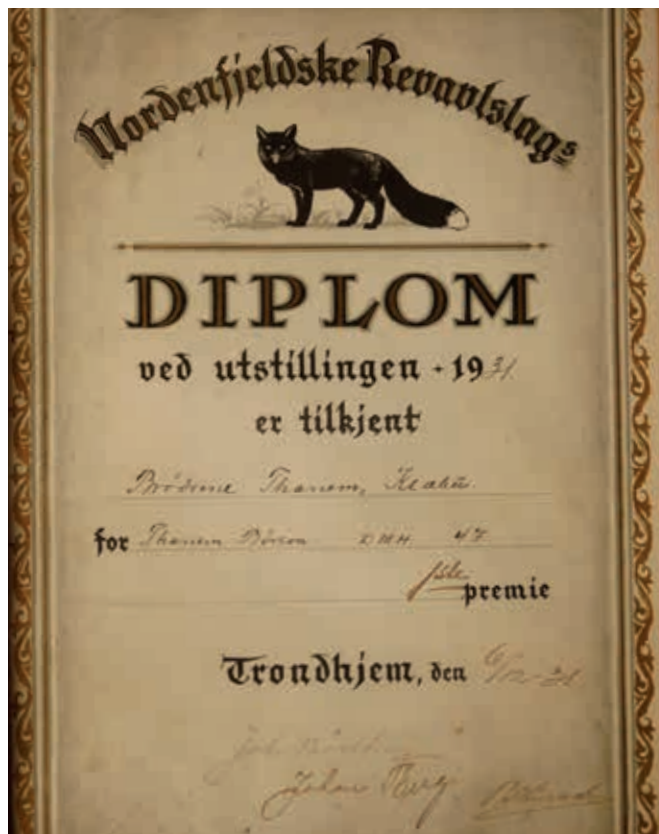 Nordenfjeldske Revavlslags
DIPLOM
ved utstillingen - 1931.
er tilkjent
Brödrene Thanem, Klæbu.
for Thanem 47
1ste
premie
Trondhjem, den 6/12-31
Johan